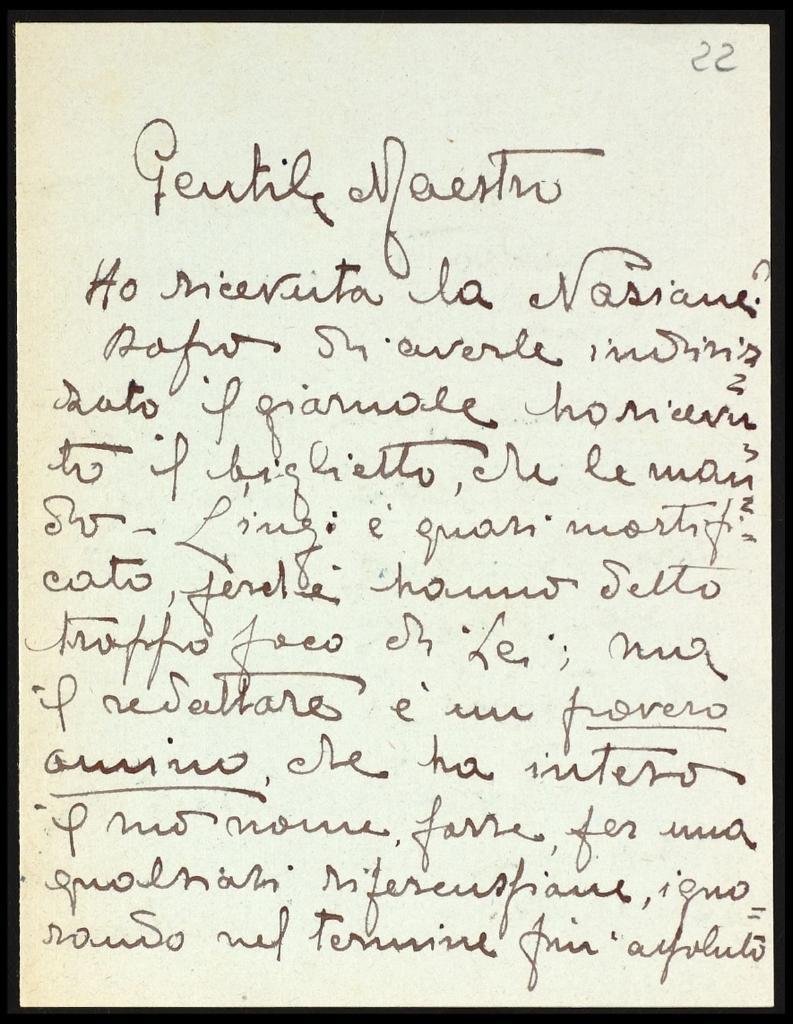 22
Gentile Maestro
Ho ricevuta la Nazione?
Dopo di averle indiriz=
zato il giornale ho ricevu=
to il biglietto, che le man=
do - Lingi è quasi mortifi=
cato, perchè hanno detto
troppo poco di Lei; ma
il redattore è un povero
omino, che ha inteso
il suo nome, forse, per una
qualsiasi, igno=
rando nel termine più assoluto